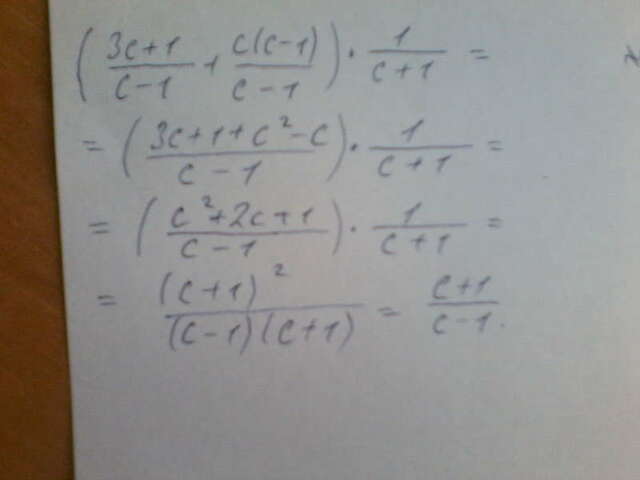 ( \frac{3c+1}{c-1} + \frac{c(c-1)}{c-1} ) · \frac{1}{c+1} =
= ( \frac{3c+1+c^2-c}{c-1} ) · \frac{1}{c+1} =
= ( \frac{c^2+2c+1}{c-1} ) · \frac{1}{c+1} =
= \frac{(c+1)^2}{(c-1)(c+1)} = \frac{c+1}{c-1}.